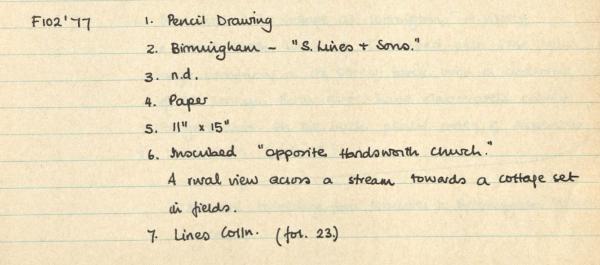 F102'77 1. Pencil Drawing
2. Birmingham - "S. Lines + Sons."
3. n.d.
4. Paper
5. 11" x 15"
6. Inscribed "opposite Handsworth Church."
A rural view across a stream towards a cottage set
in fields.
7. Lines Colln. (for. 23.)